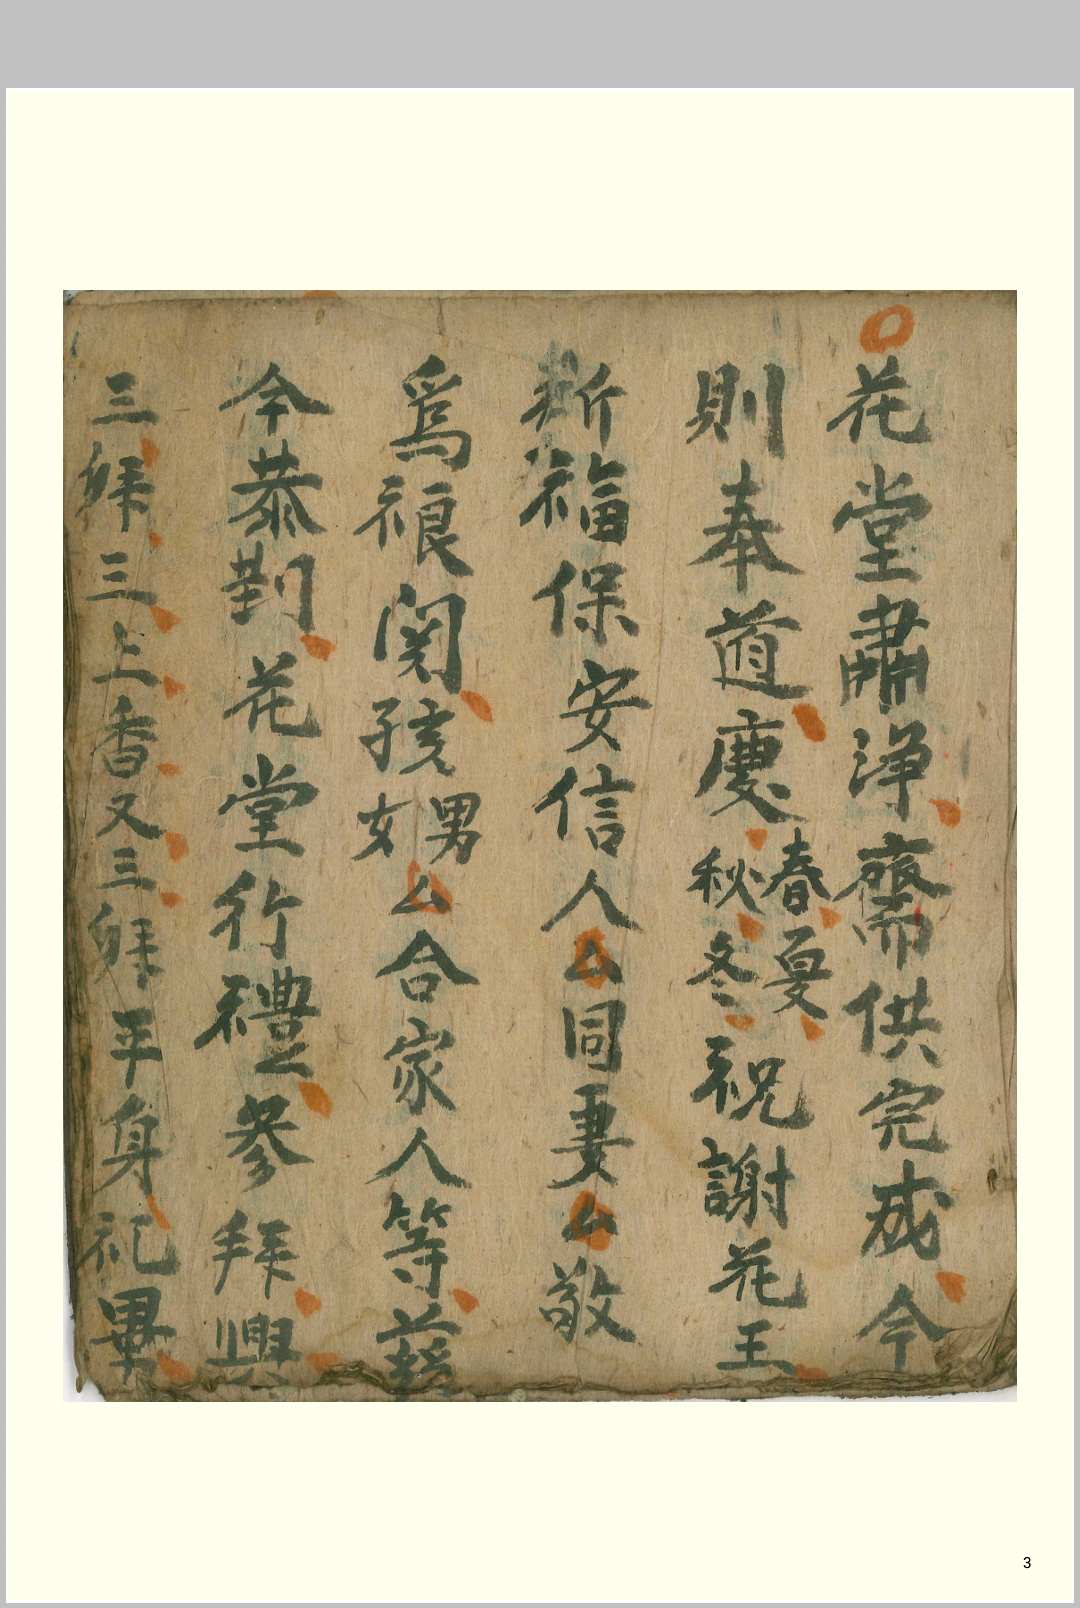 花堂肅淨齋供完成今
則奉道慶春夏秋冬祝謝花王
祈福保安信人厶同妻厶敬
爲禳関孩男女厶合家人等兹
今恭對花堂行禮參拜興
三拜三上香又三拜平身礼畢
3